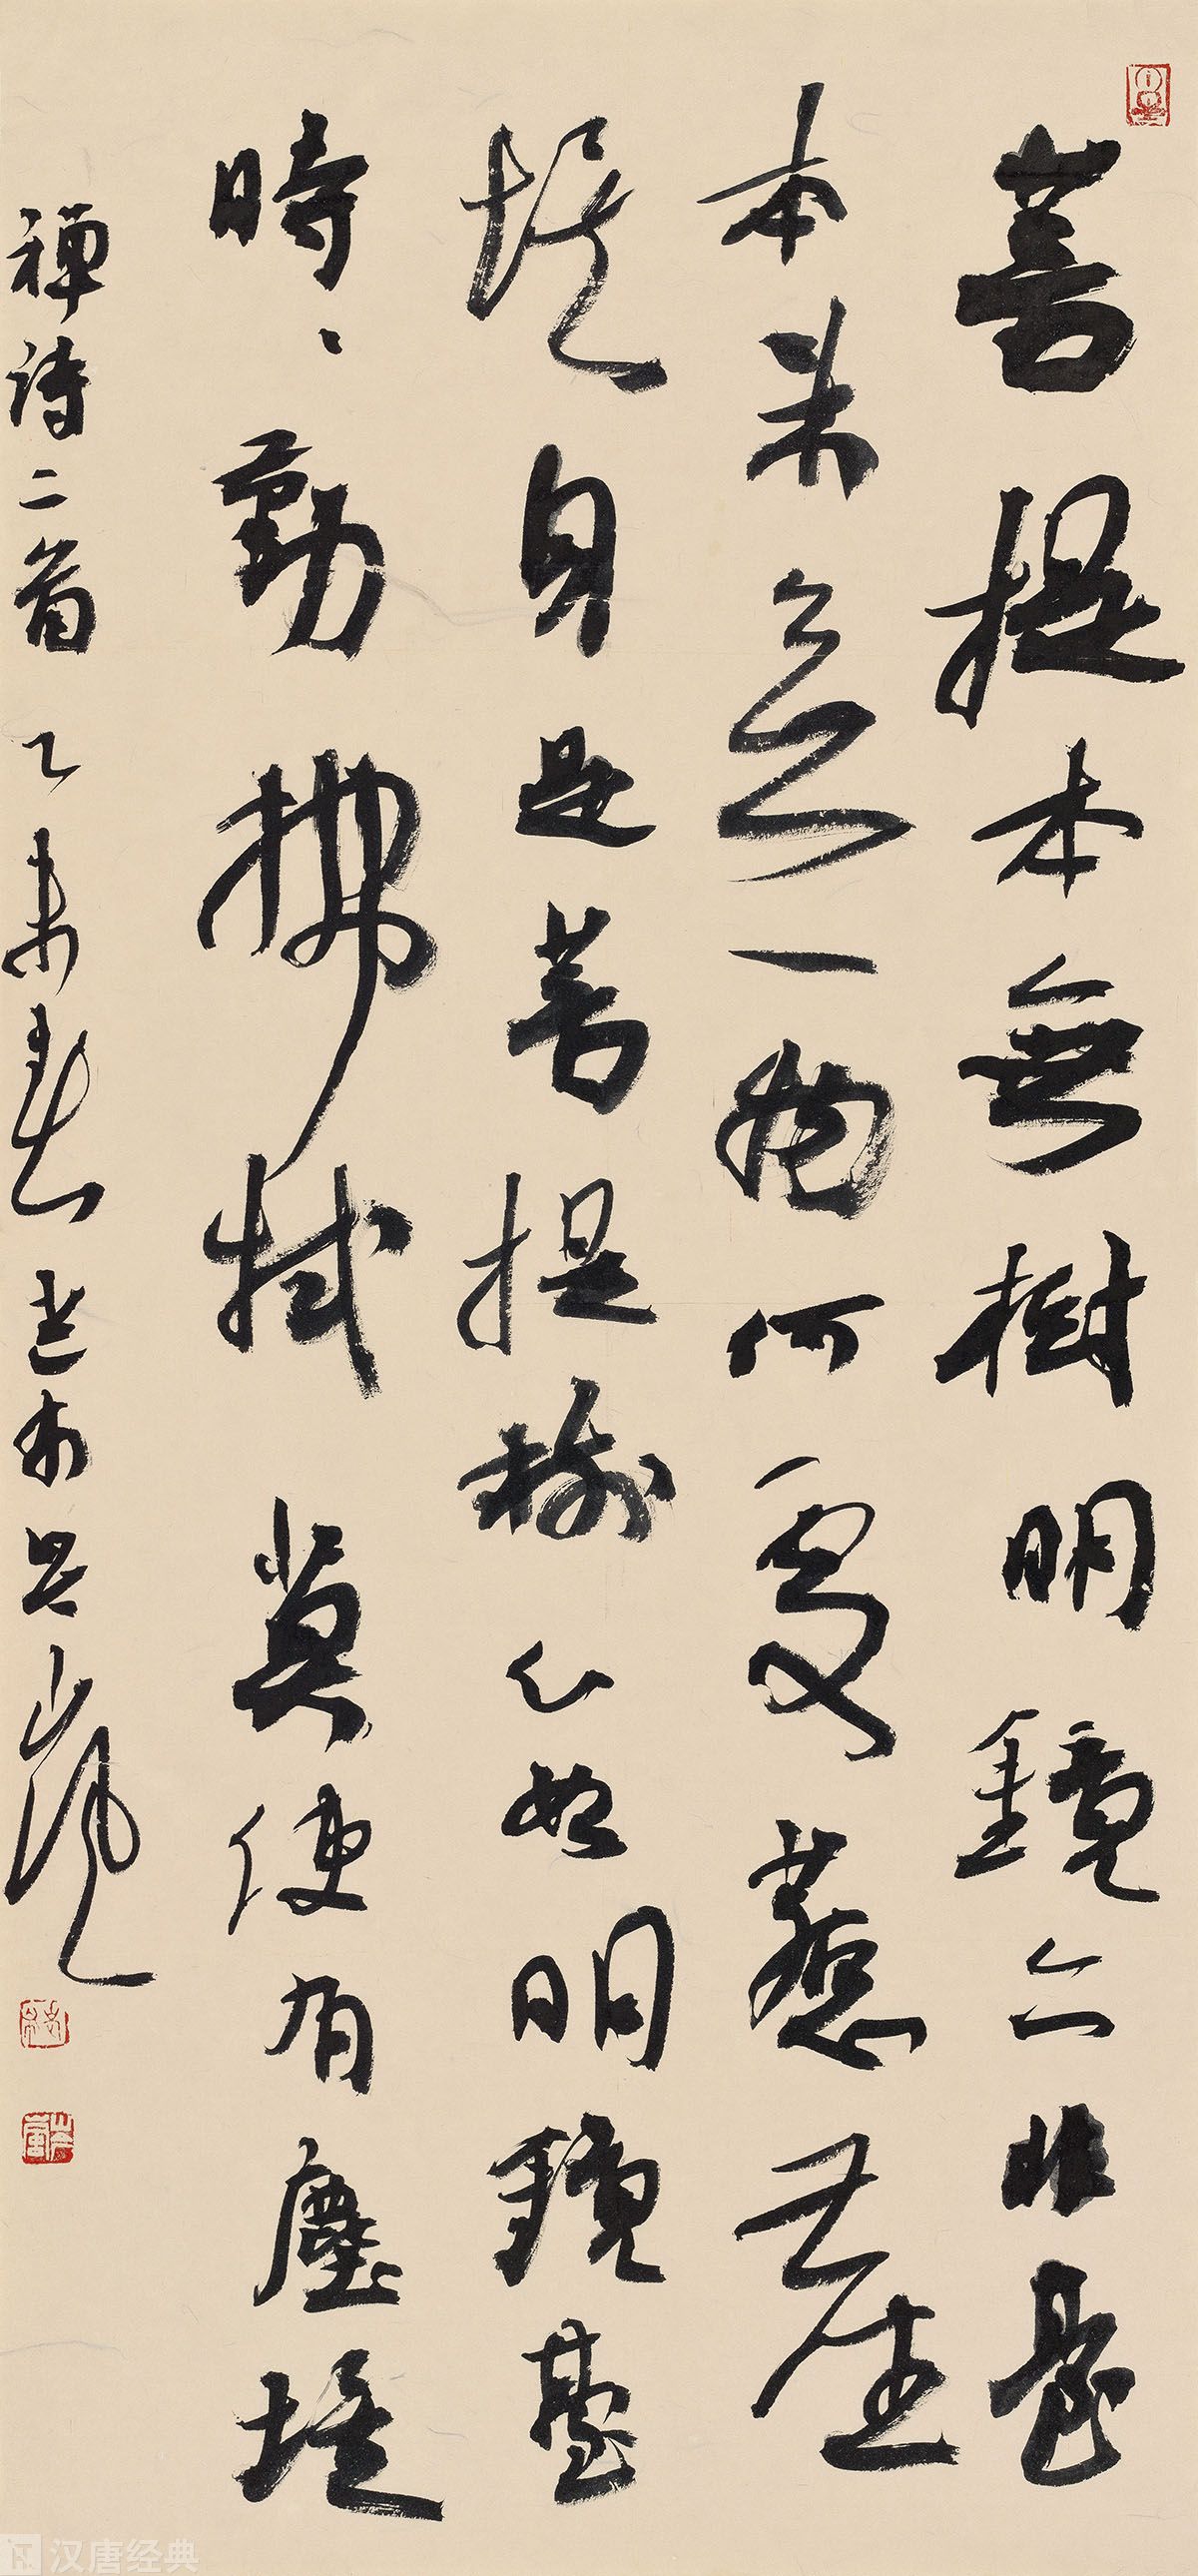 菩提本無樹明鏡亦非臺
本来無一物何處惹塵
埃身是菩提樹心如明鏡臺
時々勤拂拭莫使有塵埃
禪詩二首乙未春
汉唐经典